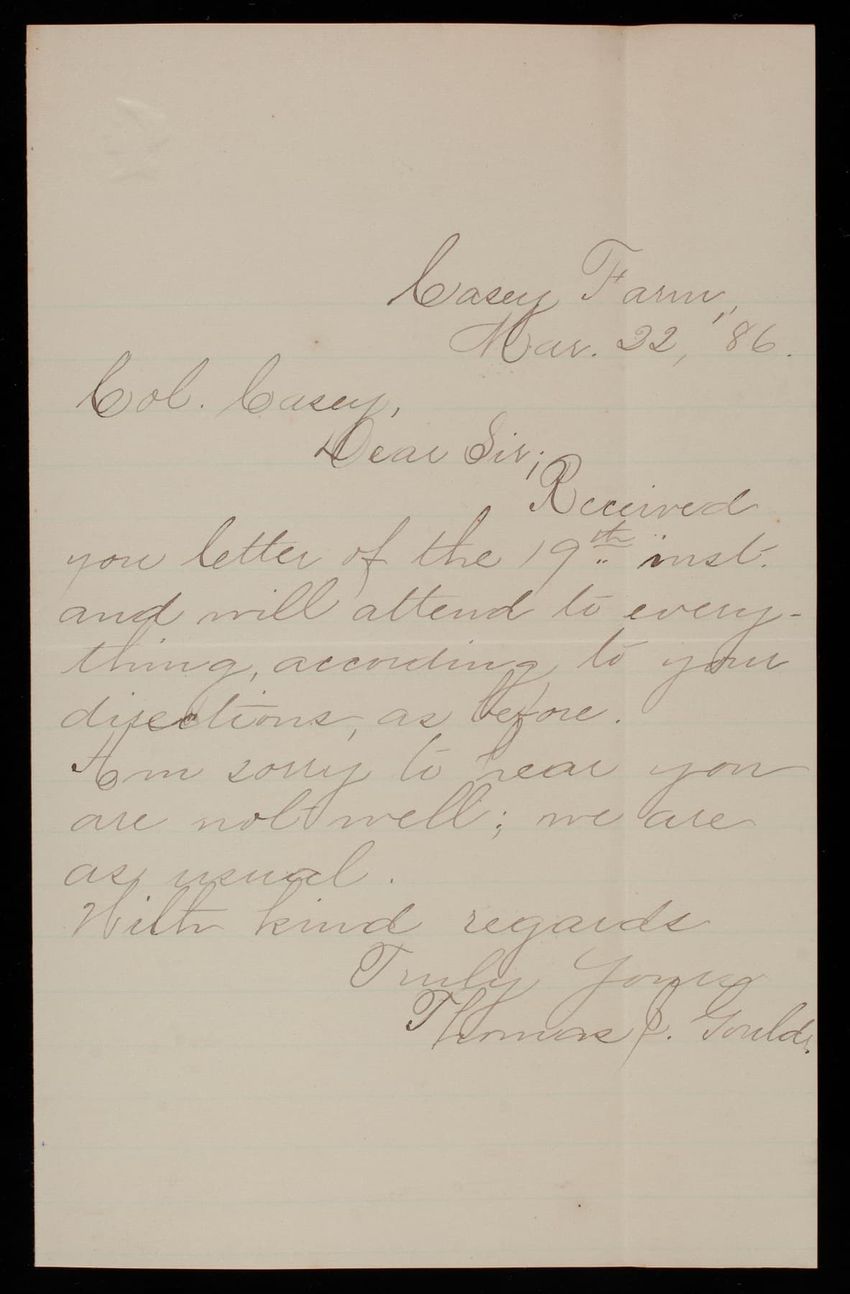 Casey Farm,
Mar. 22, '86.
Col. Casey,
Dear Sir;
Received
you letter of the 19th inst.
and will attend to every-
thing, according to your
directions, as before.
Am sorry to hear you
are not well; we are
as usual.
With kind regards
Truly Yours
Thomas J. Gould.